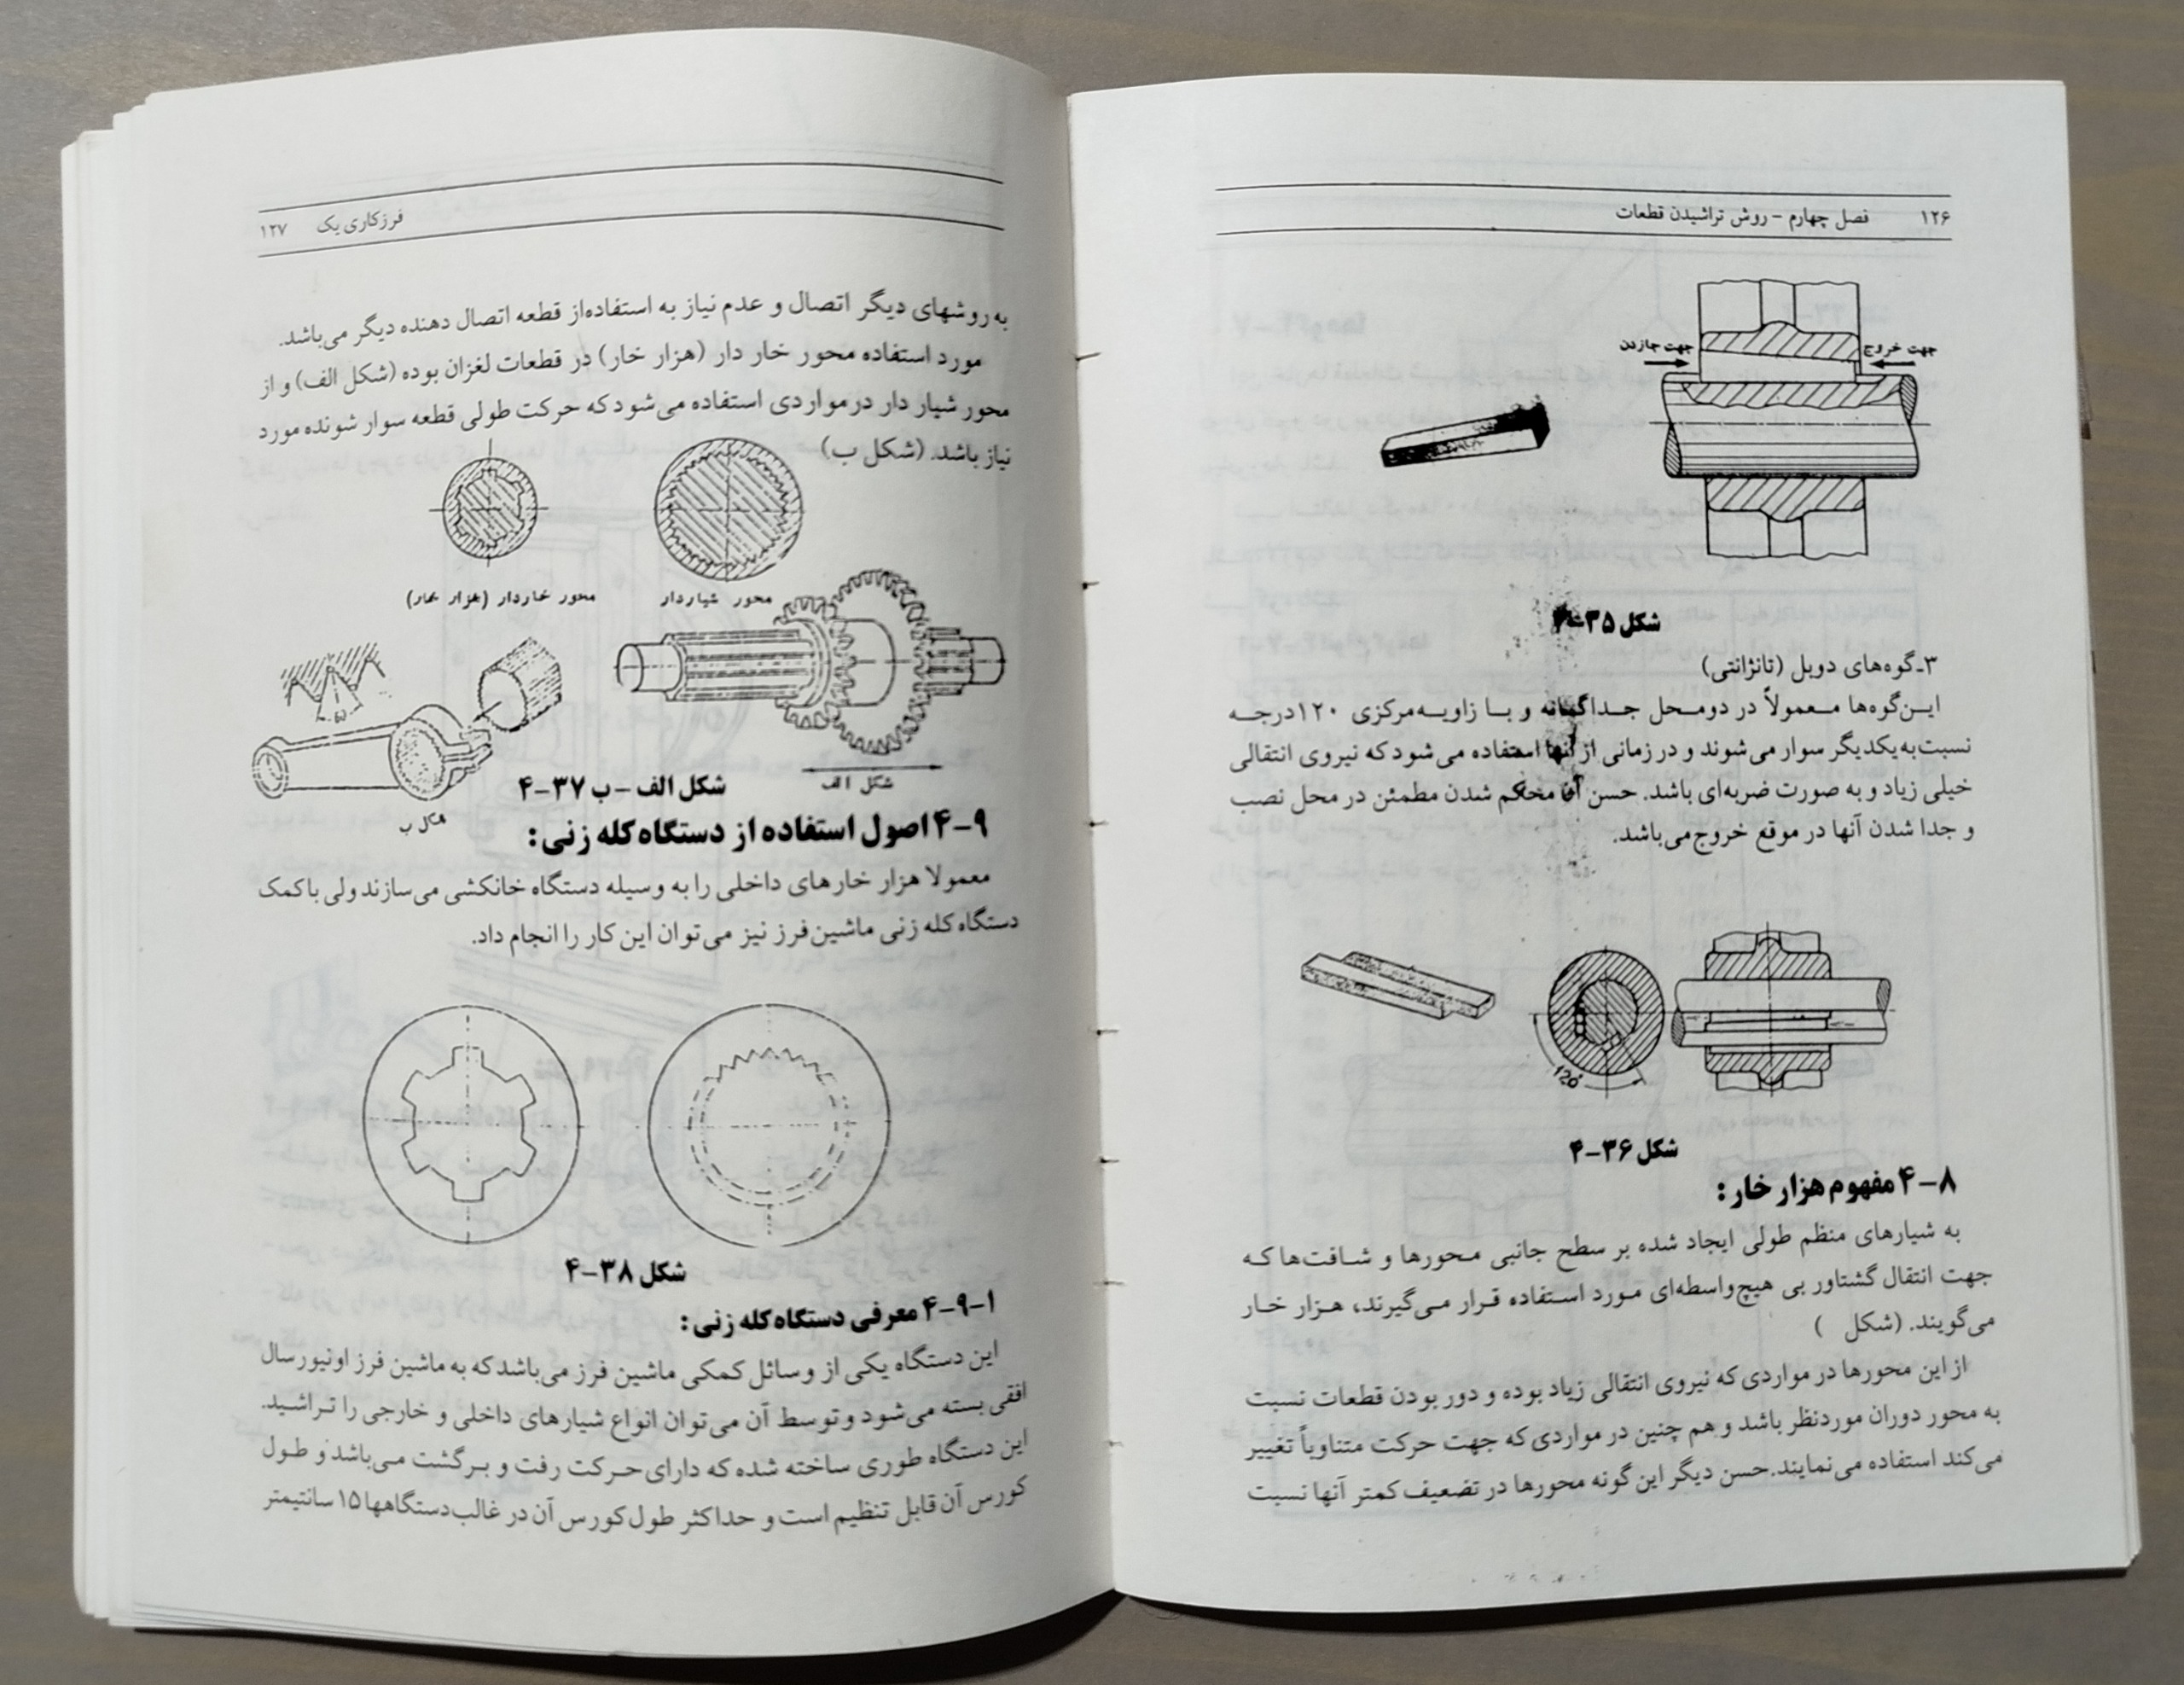 ۱۲۶ فصل چهارم – روش تراشیدن قطعات
جهت جازدن
جهت خروج
شکل ۳۵–۴
۳ـ گوه‌های دوبل (تانژانتی)
این گوه‌ها معمولاً در دومحل جداگانه و با زاویه مرکزی ۱۲۰درجه
نسبت به یکدیگر سوار می‌شوند و در زمانی از آنها استفاده می‌شود که نیروی انتقالی
خیلی زیاد و به صورت ضربه‌ای باشد. حسن آن محکم شدن مطمئن در محل نصب
و جدا شدن آنها در موقع خروج می‌باشد.
120°
شکل ۳۶–۴
۸–۴ مفهوم هزار خار:
به شیارهای منظم طولی ایجاد شده بر سطح جانبی محورها و شافت‌ها که
جهت انتقال گشتاور بی هیچ واسطه‌ای مورد استفاده قرار می‌گیرند، هزار خار
می‌گویند. (شکل )
از این محورها در مواردی که نیروی انتقالی زیاد بوده و دور بودن قطعات نسبت
به محور دوران موردنظر باشد و هم چنین در مواردی که جهت حرکت متناوباً تغییر
می‌کند استفاده می‌نمایند. حسن دیگر این گونه محورها در تضعیف کمتر آنها نسبت
فرزکاری یک ۱۲۷
به روشهای دیگر اتصال و عدم نیاز به استفاده‌از قطعه اتصال دهنده دیگر می‌باشد.
مورد استفاده محور خار دار (هزار خار) در قطعات لغزان بوده (شکل الف) و از
محور شیار دار درمواردی استفاده می‌شود که حرکت طولی قطعه سوار شونده مورد
نیاز باشد. (شکل ب)
محور شیاردار
محور خاردار (هزار خار)
60
شکل الف
شکل ب
شکل الف – ب ۳۷–۴
۹–۴ اصول استفاده از دستگاه کله زنی:
معمولا هزار خارهای داخلی را به وسیله دستگاه خانکشی می‌سازند ولی با کمک
دستگاه کله زنی ماشین فرز نیز می‌توان این کار را انجام داد.
شکل ۳۸–۴
۱–۹–۴ معرفی دستگاه کله زنی:
این دستگاه یکی از وسائل کمکی ماشین فرز می‌باشد که به ماشین فرز اونیورسال
افقی بسته می‌شود و توسط آن می‌توان انواع شیارهای داخلی و خارجی را تراشید.
این دستگاه طوری ساخته شده که دارای حرکت رفت و برگشت می‌باشد و طول
کورس آن قابل تنظیم است و حداکثر طول کورس آن در غالب دستگاهها ۱۵ سانتیمتر